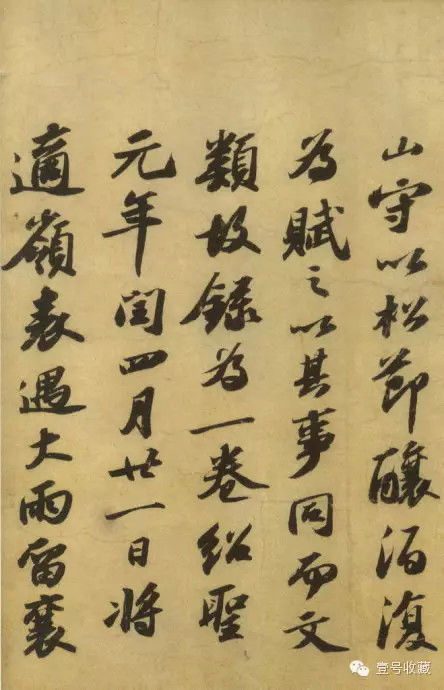 山守以松節釀酒復
為賦之以其事同而文
類故錄為一卷紹聖
元年閏四月廿一日將
適嶺表遇大雨留襄
壹号收藏